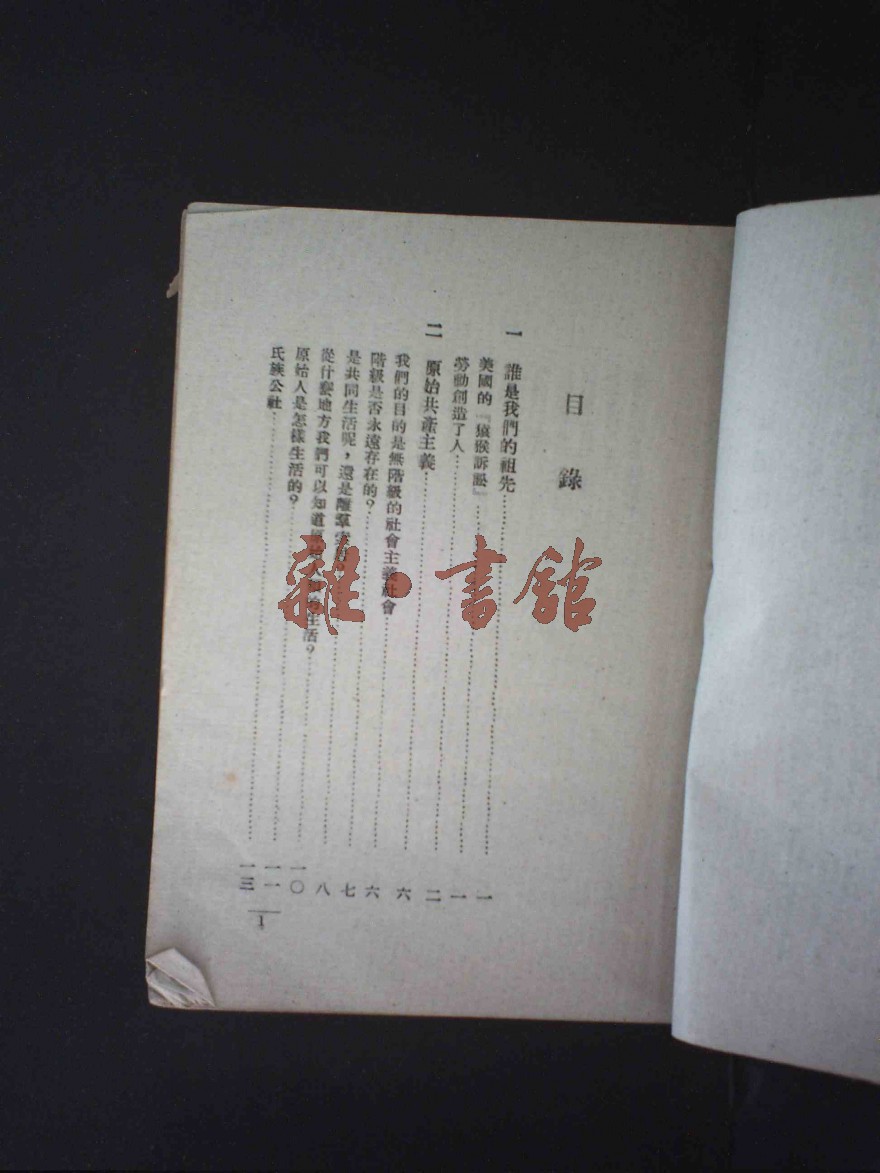 目錄
一 誰是我們的祖先 一
美國的『猿猴訴訟』 一
勞動創造了人 二
二 原始共產主義 六
我們的目的是無階級的社會主義社會 六
階級是否永遠存在的？ 七
是共同生活呢，還是離羣 八
從什麼地方我們可以知道原始人 的生活？ 一〇
原始人是怎樣生活的？ 一一
氏族公社 一三
1
雜·書館